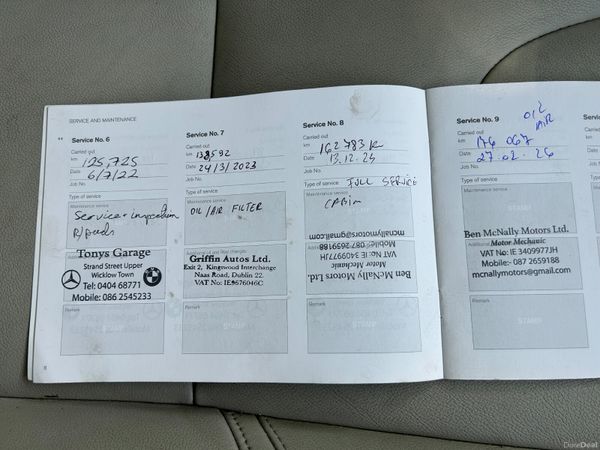 SERVICE AND MAINTENANCE
Service No. 6
Carried out
km 125,725
Date 6/7/22
Job No.
Type of service
Maintenance service
Service + inspection
R/pads
Tonys Garage
Strand Street Upper
Wicklow Town
Tel: 0404 68771
Mobile: 086 2545233
Remark
Service No. 7
Carried out
km 138,592
Date 24/3/2023
Job No.
Type of service
Maintenance service
OIL/AIR FILTER
Griffin Autos Ltd.
Exit 2, Kingswood Interchange
Naas Road, Dublin 22.
VAT No: IE9576046C
Remark
Service No. 8
Carried out
km 162783 K
Date 13.12.24
Job No.
Type of service FULL SERVICE
Maintenance service
CABIN
Ben McNally Motors Ltd.
Motor Mechanic
VAT No: IE 3409977JH
Mobile: 087 2659188
mcnallymotors@gmail.com
Remark
STAMP
Service No. 9
OIL
AIR
Carried out
km 176 067
Date 27.02.26
Job No.
Type of service
Maintenance service
Ben McNally Motors Ltd.
Motor Mechanic
VAT No: IE 3409977JH
Mobile: - 087 2659188
mcnallymotors@gmail.com
Remark
STAMP
8
DoneDeal